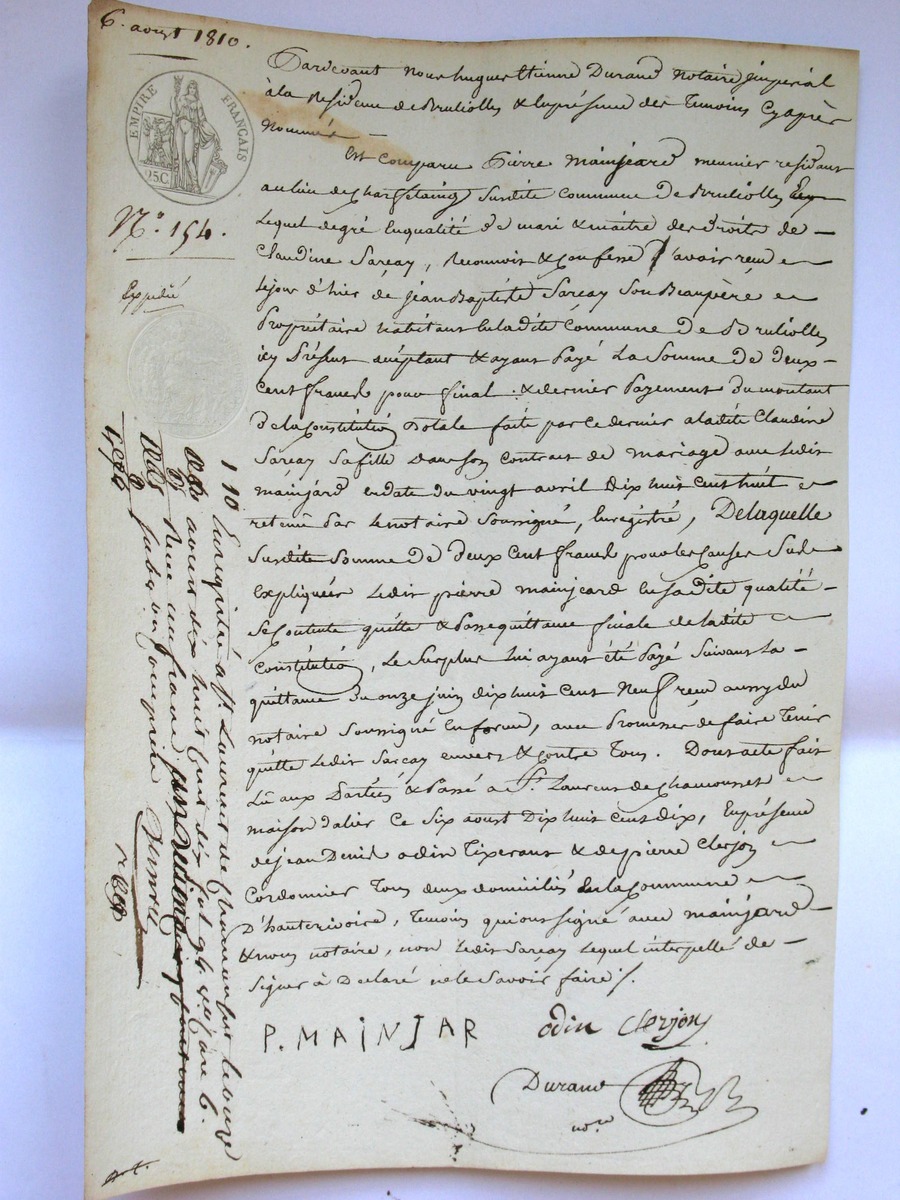 6. aoust 1810.
EMPIRE FRANÇAIS
25C
N.º 154.
Expédié
Pardevant nous hugues Etienne Durand notaire jmperial
à la Residence de Brullolles & la présence des Temoins Cyaprès
Nommés —
Est comparu Pierre mainjard meunier residant
au lieu de susdite Commune de Brullolles
Lequel de gré En qualité de mari & maître des Droits de —
Claudine Sarcay, Reconnoit & Confesse avoir reçu
Le jour d'hier de jean Baptiste Sarcay Son Beaupère
Propriétaire habitant en ladite Commune de Brullolles
icy Présent acceptant & ayant Payé La Somme de deux
cent francs pour final & dernier Payement du montant
de la Constitution Dotale faite par ce dernier a ladite Claudine
Sarcay Sa fille Dans son contrat de mariage avec ledit
mainjard en date du vingt avril dix huit cent huit
retenu par le notaire Soussigné, Enregistré, De laquelle
Susdite Somme de deux Cent francs pour les causes Sus
Expliquées Ledit pierre mainjeard En sadite qualité —
Se Contente quitte & Passe quittance finale de ladite
Constitution, Le Surplus lui ayant été Payé Suivant La —
quittance du onze juin dix huit cent neuf reçu aussy du
notaire Soussigné En forme, avec Promesse de faire Tenir
quitte Ledit Sarcay envers & contre Tous. Dont acte fait
Lû aux Parties & Passé à St. Laurent de Chamousset
maison d'alier Ce Six aoust Dix huit cent dix, En présence
de jean Denis odin Tixerant & de pierre Clerjon
Cordonnier Tous deux domiciliés en la Commune
D'hauterivoire, Temoins qui ont signé avec mainjard —
& nous notaire, non Ledit Sarcay Lequel interpellé de —
Signer à Declaré ne le Savoir faire /.
P. MAINJAR odin Clerjon
Durand
nore
1 10 Enregistré à St. Laurent de Chamousset le onze
aoust dix huit cent dix fol 94 Vo Case 6.
Reçu un franc